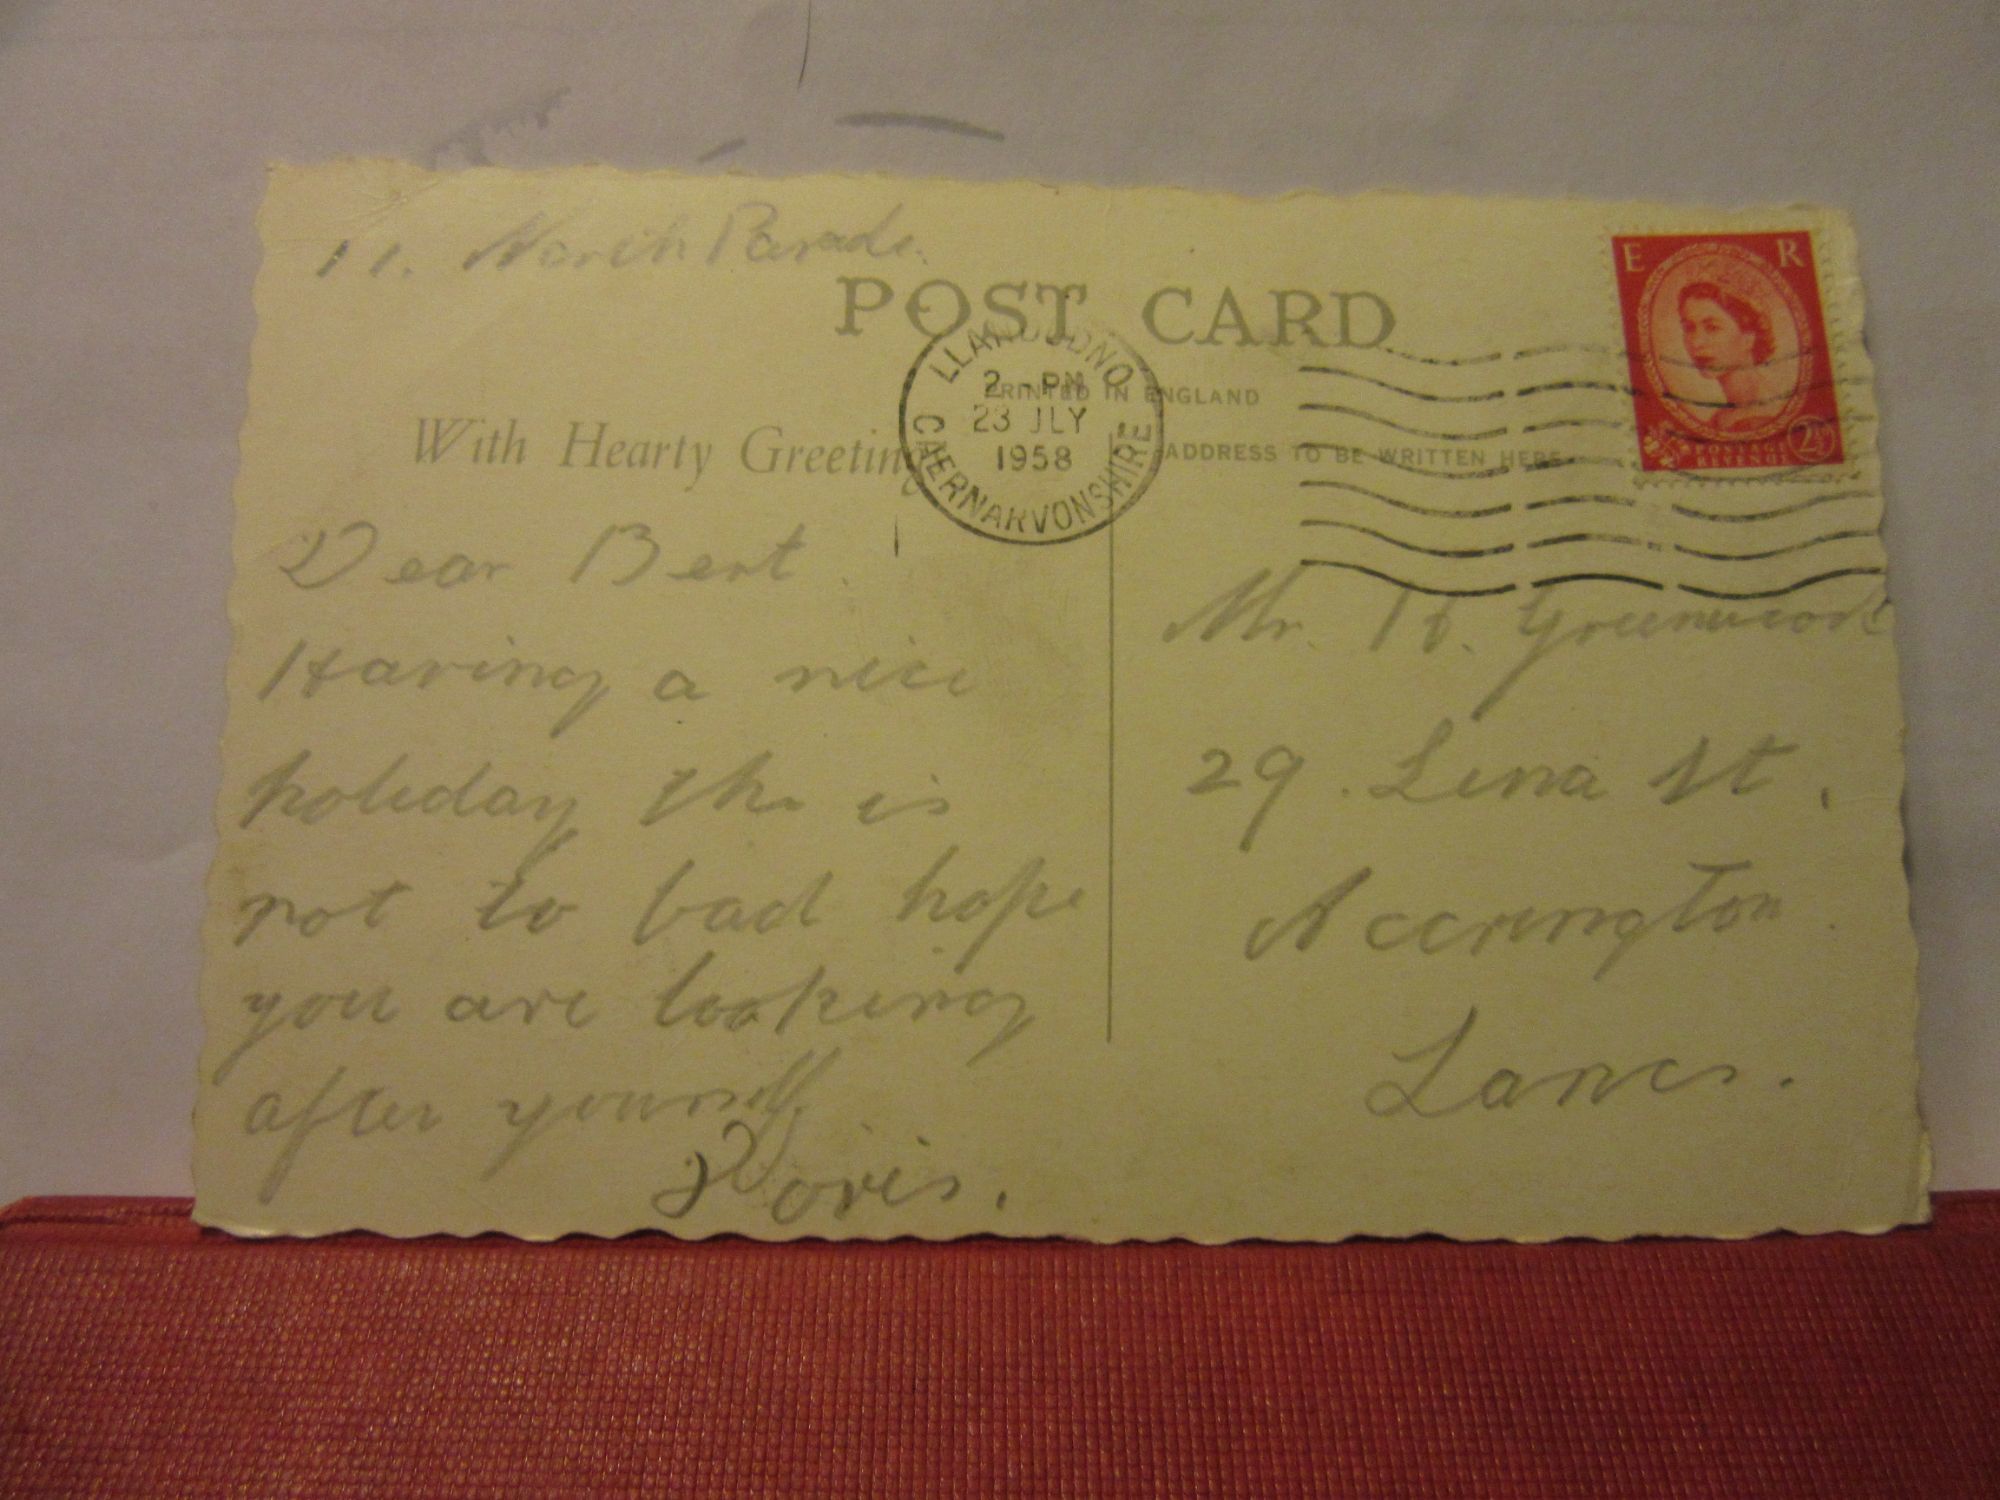 11. North Parade.
POST CARD
PRINTED IN ENGLAND
With Hearty Greetings
ADDRESS TO BE WRITTEN HERE
LLANDUDNO
2 - PM
23 JLY
1958
CAERNARVONSHIRE
E R
POSTAGE
REVENUE
2½
Dear Bert.
Having a nice
holiday the is
not to bad hope
you are looking
after yourself
Doris.
Mr. H. Greenwood
29. Lena St.
Accrington
Lancs.